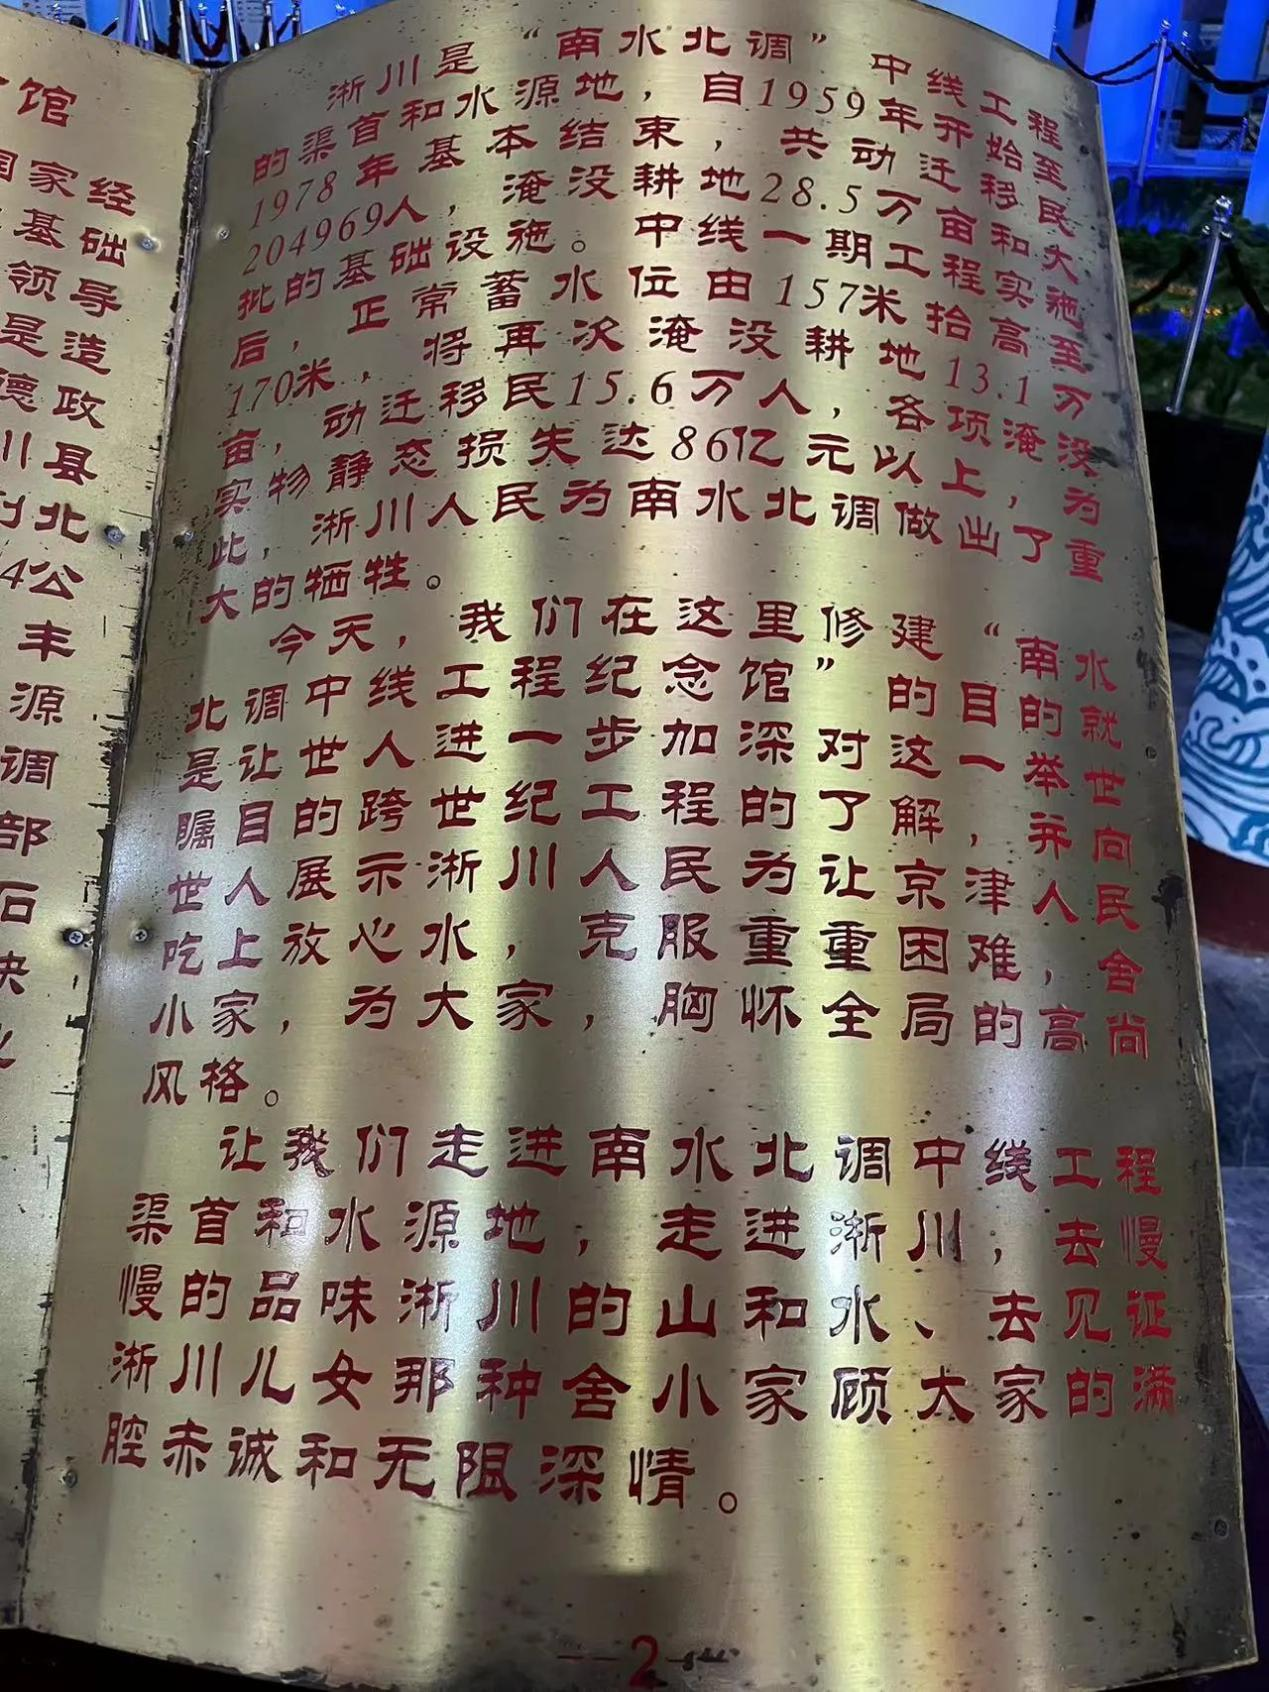 馆
家经
基础
领导
是造
德政
川县
北
4公
丰
源
调
部
石
淅川是“南水北调”中线工程
的渠首和水源地，自1959年开始至
1978年基本结束，共动迁移民
204969人，淹没耕地28.5万亩和大
批的基础设施。中线一期工程实施
后，正常蓄水位由157米抬高至
170米，将再次淹没耕地13.1万
亩，动迁移民15.6万人，各项淹没
实物静态损失达86亿元以上，为
此，淅川人民为南水北调做出了重
大的牺牲。
今天，我们在这里修建“南水
北调中线工程纪念馆”的目的就
是让世人进一步加深对这一举世
瞩目的跨世纪工程的了解，并向
世人展示淅川人民为让京津人民
吃上放心水，克服重重困难，舍
小家，为大家，胸怀全局的高尚
风格。
让我们走进南水北调中线工程
渠首和水源地，走进淅川，去慢
慢的品味淅川的山和水、去见证
淅川儿女那种舍小家顾大家的满
腔赤诚和无阻深情。
2